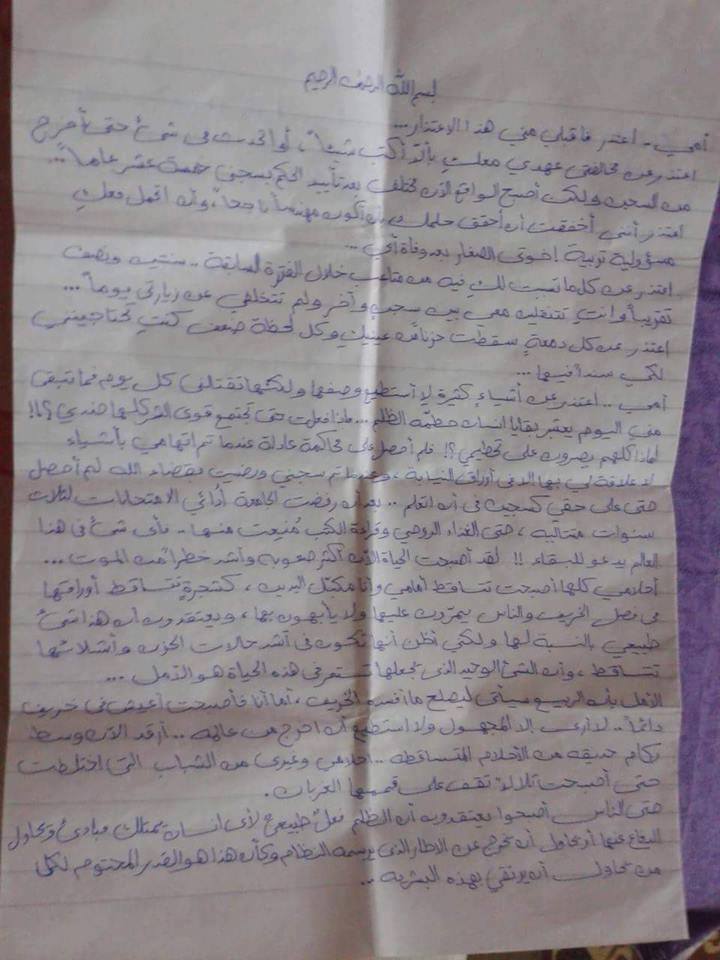 بسم الله الرحمن الرحيم
أمي .. اعتذر فاقبلي مني هذا الاعتذار ...
اعتذر عن مخالفتي عهدي معك بألا أكتب شيئاً، أو اتحدث في شئ حتى أخرج
من السجن ولكن أصبح الواقع الآن مختلف بعد تأييد الحكم بسجني خمسة عشر عاماً ...
اعتذر أنني أخفقت أن أحقق حلمك بأن أكون مهندساً ناجحاً، وأن اتحمل معكِ
مسؤولية تربية إخوتي الصغار بعد وفاة أبي ...
اعتذر عن كل ما تسببت لكِ فيه من متاعب خلال الفترة السابقة .. سنتين ونصف
تقريباً وأنتِ تتنقلين معي بين سجن وآخر ولم تتخلفي عن زيارتي يوماً ...
اعتذر عن كل دمعةٍ سقطت حزناً من عينيكِ وكل لحظة ضعف كنتِ تحتاجينني
لكي سنداً فيها ...
أمي .. اعتذر عن أشياءٍ كثيرة لا أستطيع وصفها ولكنها تقتلني كل يوم فما تبقى
مني اليوم يعتبر بقايا انسان حطمه الظلم .. ماذا فعلت حتى تجتمع قوى الشر كلها ضدي؟!!
لماذا كلهم يصرون على تحطيمي؟! فلم أحصل على محاكمة عادلة عندما تم اتهامي بأشياء
لا علاقة لي بها إلا في أوراق النيابة، وعندما تم سجني ورضيت بقضاء الله لم أحصل
حتى على حقي كسجين في أن اتعلم .. بعد أن رفضت الجامعة أدائي الامتحانات لثلاث
سنوات متتالية، حتى الغذاء الروحي وقراءة الكتب مُنِعت منها .. بأى شئ في هذا
العالم يدعو للبقاء!! لقد أصبحت الحياة الآن أكثر صعوبة وأشد خطراً من الموت ...
أحلامي كلها أصبحت تتساقط أمامي وأنا مكبّل اليدين، كشجرةٍ تتساقط أوراقها
في فصل الخريف والناس يمرّون عليها ولا يأبهون بها، ويعتقدون أن هذا شئ
طبيعي بالنسبة لها ولكني أظن أنها تكون في أشد حالات الحزن وأشلائها
تتساقط، وأن الشئ الوحيد الذي يجعلها تستمر في هذه الحياة هو الأمل ...
الأمل بأن الربيع سيأتي ليصلح ما أفسده الخريف، أما أنا فأصبحت أعيش في خريف
دائماً .. لا أرى إلا المجهول ولا استطيع أن اخرج من عالمه .. أرقد الآن وسط
ركام حديقة من الأحلام المتساقطة .. أحلامي وغيري من الشباب التي اختلطت
حتى أصبحت تلالاً تقف على قممها الغربان.
حتى الناس أصبحوا يعتقدون أن الظلم فعلٌ طبيعي لأى انسان يمتلك مبادئ ويحاول
الدفاع عنها أو يحاول أن يخرج عن الاطار الذي يرسمه النظام وكأن هذا هو القدر المحتوم لكل
من يحاول أن يرتقي بهذه البشرية ..